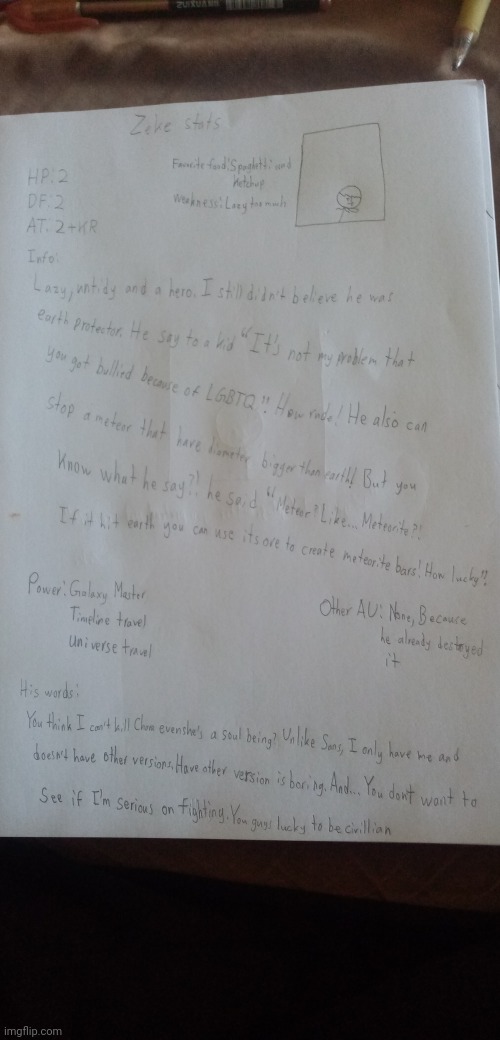 Zeke stats
Favorite food: Spaghetti and
Ketchup
Weakness: Lazy too much
HP: 2
DF: 2
AT: 2+KR
Info:
Lazy, untidy and a hero. I still didn't believe he was
earth protector. He say to a kid "It's not my problem that
you got bullied because of LGBTQ"! How rude! He also can
stop a meteor that have diameter bigger than earth! But you
know what he say?! he said "Meteor? Like... Meteorite?!
If it hit earth you can use its ore to create meteorite bars! How lucky"?
Power: Galaxy Master
Timeline travel
Universe travel
Other AU: None, Because
he already destroyed
it
His words:
You think I can't kill Chara even she's a soul being? Unlike Sans, I only have me and
doesn't have other versions. Have other version is boring. And... You don't want to
see if I'm serious on fighting. You guys lucky to be civillian
imgflip.com